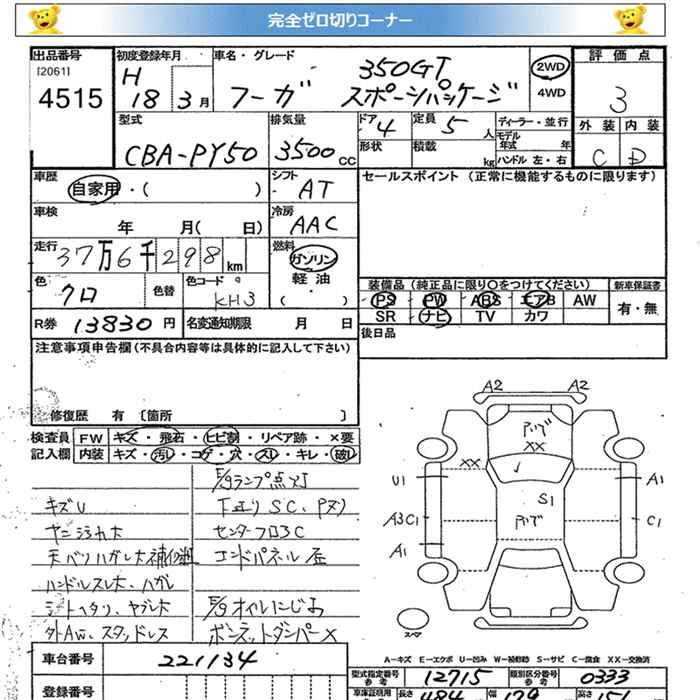 完全ゼロ切りコーナー
出品番号 初度登録年月 車名・グレード 評価点
[2061] H 350GT 2WD
4515 18年3月 フーガ スポーツパッケージ 4WD 3
型式 排気量 ドア 4 定員 5人 ディーラー・並行 外装 内装
CBA-PY50 3500cc 形状 積載 kg モデル年式 年 C D
ハンドル 左・右
車歴 自家用・( ) シフト AT セールスポイント (正常に機能するものに限ります)
車検 年 月( 日) 冷房 AAC
走行 37万6千298km 燃料 ガソリン
軽油
・( )
色 クロ 色替 色コード KH3 装備品 (純正品に限り○をつけてください) 新車保証書
PS PW ABS エアB AW 有・無
R券 13830円 名変通知期限 月 日 SR ナビ TV カワ
注意事項申告欄(不具合内容等は具体的に記入して下さい) 後日品
修復歴 有 〔箇所 〕
検査員 FW キズ・飛石・ヒビ割・リペア跡・×要
記入欄 内装 キズ・汚レ・コゲ・穴・スレ・キレ・破レ
E/gランプ点灯
キズU 下廻りSC、Pヌリ
ヤニ汚れ大 センターフロアC
天ベリハガレ大 エンドパネル歪
ハンドルスレ大、ハガレ
シートヘタリ、ヤブレ大 E/gオイルにじみ
外AW、スタッドレス ボンネットダンパー×
A2 A2
XX
XX
U1 A1
S1
A3 C1 C1
A1
スペア
A－キズ E－エクボ U－凹み W－補修跡 S－サビ C－腐食 XX－交換済
車台番号 221134
型式指定番号 参考 12715 類別区分番号 参考 0333
登録番号
車庫証明用 長さ 484 幅 179 高さ